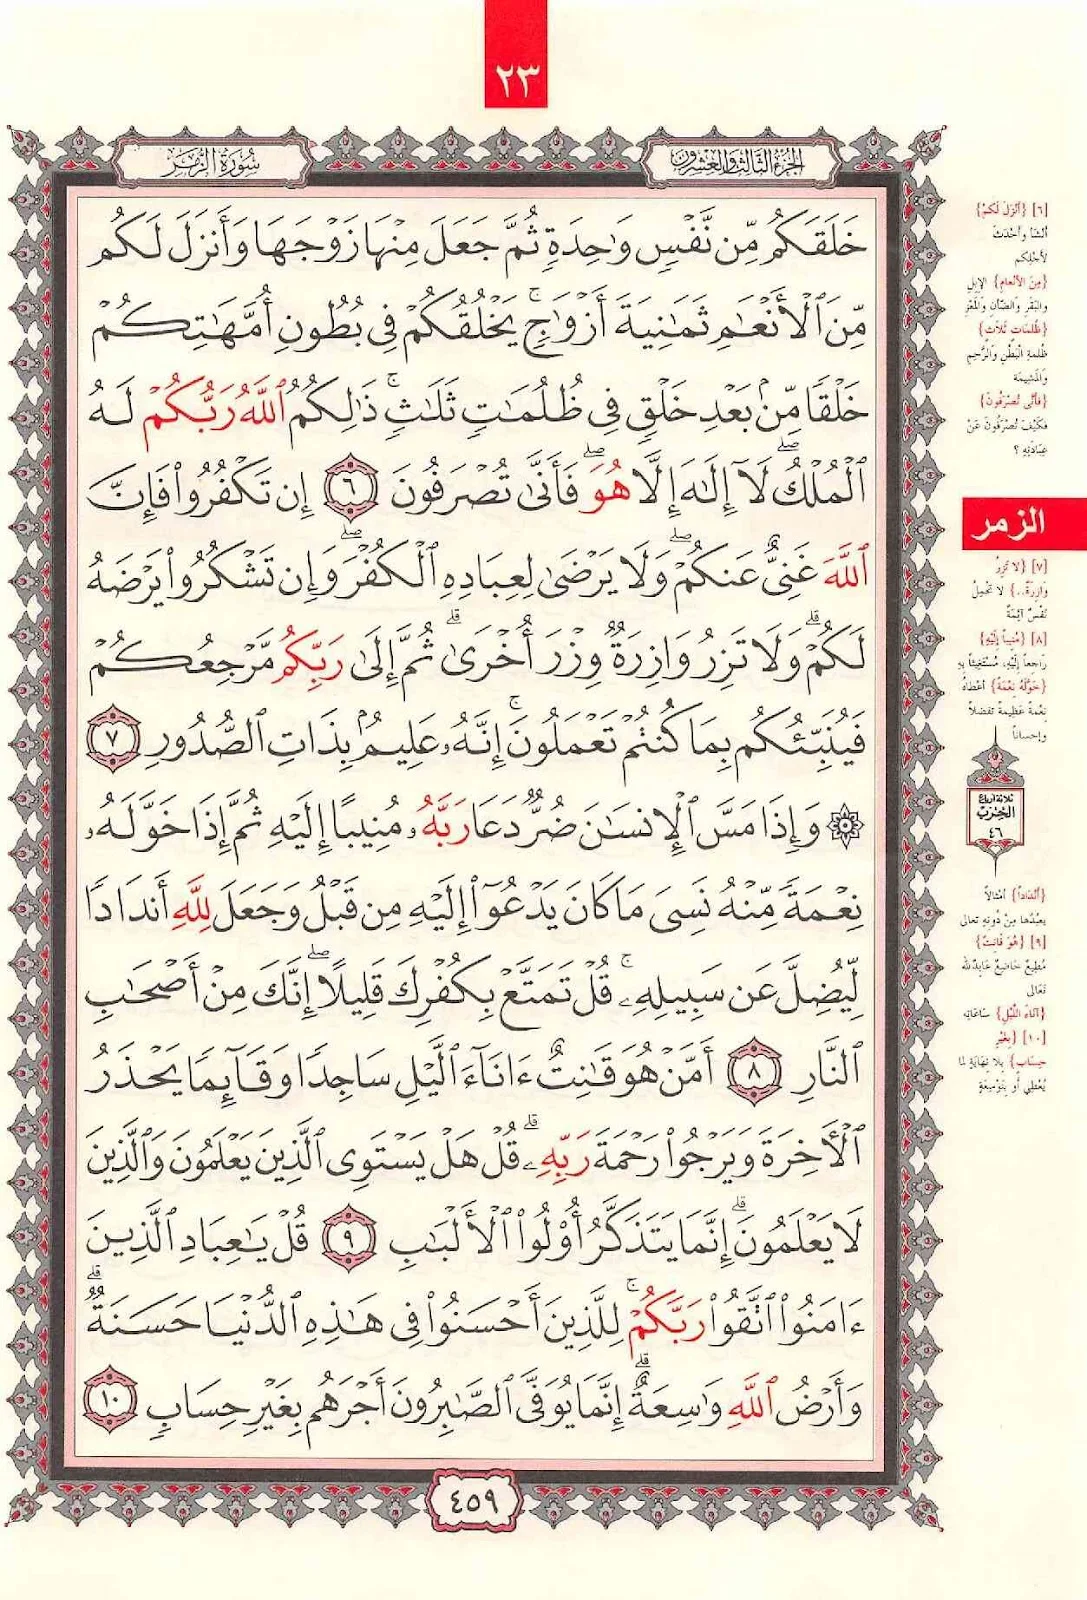 ٢٣
الجزء الثالث والعشرون
سورة الزمر
خَلَقَكُم مِّن نَّفْسٍ وَٰحِدَةٍ ثُمَّ جَعَلَ مِنْهَا زَوْجَهَا وَأَنزَلَ لَكُم
مِّنَ ٱلْأَنْعَـٰمِ ثَمَـٰنِيَةَ أَزْوَٰجٍ ۚ يَخْلُقُكُمْ فِى بُطُونِ أُمَّهَـٰتِكُمْ
خَلْقًا مِّنۢ بَعْدِ خَلْقٍ فِى ظُلُمَـٰتٍ ثَلَـٰثٍ ۚ ذَٰلِكُمُ ٱللَّهُ رَبُّكُمْ لَهُ
ٱلْمُلْكُ ۖ لَآ إِلَـٰهَ إِلَّا هُوَ ۖ فَأَنَّىٰ تُصْرَفُونَ ٦ إِن تَكْفُرُوا۟ فَإِنَّ
ٱللَّهَ غَنِىٌّ عَنكُمْ ۖ وَلَا يَرْضَىٰ لِعِبَادِهِ ٱلْكُفْرَ ۖ وَإِن تَشْكُرُوا۟ يَرْضَهُ
لَكُمْ ۗ وَلَا تَزِرُ وَازِرَةٌ وِزْرَ أُخْرَىٰ ۗ ثُمَّ إِلَىٰ رَبِّكُم مَّرْجِعُكُمْ
فَيُنَبِّئُكُم بِمَا كُنتُمْ تَعْمَلُونَ ۚ إِنَّهُۥ عَلِيمٌۢ بِذَاتِ ٱلصُّدُورِ ٧
۞ وَإِذَا مَسَّ ٱلْإِنسَـٰنَ ضُرٌّ دَعَا رَبَّهُۥ مُنِيبًا إِلَيْهِ ثُمَّ إِذَا خَوَّلَهُۥ
نِعْمَةً مِّنْهُ نَسِىَ مَا كَانَ يَدْعُوٓا۟ إِلَيْهِ مِن قَبْلُ وَجَعَلَ لِلَّهِ أَندَادًا
لِّيُضِلَّ عَن سَبِيلِهِۦ ۚ قُلْ تَمَتَّعْ بِكُفْرِكَ قَلِيلًا ۖ إِنَّكَ مِنْ أَصْحَـٰبِ
ٱلنَّارِ ٨ أَمَّنْ هُوَ قَـٰنِتٌ ءَانَآءَ ٱلَّيْلِ سَاجِدًا وَقَآئِمًا يَحْذَرُ
ٱلْـَٔاخِرَةَ وَيَرْجُوا۟ رَحْمَةَ رَبِّهِۦ ۗ قُلْ هَلْ يَسْتَوِى ٱلَّذِينَ يَعْلَمُونَ وَٱلَّذِينَ
لَا يَعْلَمُونَ ۗ إِنَّمَا يَتَذَكَّرُ أُو۟لُوا۟ ٱلْأَلْبَـٰبِ ٩ قُلْ يَـٰعِبَادِ ٱلَّذِينَ
ءَامَنُوا۟ ٱتَّقُوا۟ رَبَّكُمْ ۚ لِلَّذِينَ أَحْسَنُوا۟ فِى هَـٰذِهِ ٱلدُّنْيَا حَسَنَةٌ ۗ
وَأَرْضُ ٱللَّهِ وَٰسِعَةٌ ۗ إِنَّمَا يُوَفَّى ٱلصَّـٰبِرُونَ أَجْرَهُم بِغَيْرِ حِسَابٍ ١٠
٤٥٩
[٦] {أَنْزَلَ لَكُمْ}
أنشأ وأحدث
لأجلكم
{مِنَ الأَنْعَامِ} الإبل
والبقر والضأن والمعز
{ظُلُمَات ثَلاَث}
ظلمة البطن والرحم
والمشيمة
{فَأَنَّى تُصْرَفُونَ}
فكيف تصرفون عن
عبادته ؟
الزمر
[٧] {لا تَزِرُ
وَازِرَةٌ..} لا تحمل
نفس آثمة
[٨] {مُنِيباً إِلَيْهِ}
راجعاً إليه، مستغيثاً به
{خَوَّلَهُ نِعْمَةً} أعطاه
نعمة عظيمة تفضلاً
وإحساناً
ثلاثة أرباع
الحزب
٤٦
{أَنْدَاداً} أمثالاً
يعبدها من دونه تعالى
[٩] {هُوَ قَانِتٌ}
مطيع خاضع عابد لله
تعالى
{آنَاءَ اللَّيْلِ} ساعاته
[١٠] {بِغَيْرِ
حِسَاب} بلا نهاية لما
يُعطي أو بتوسعة